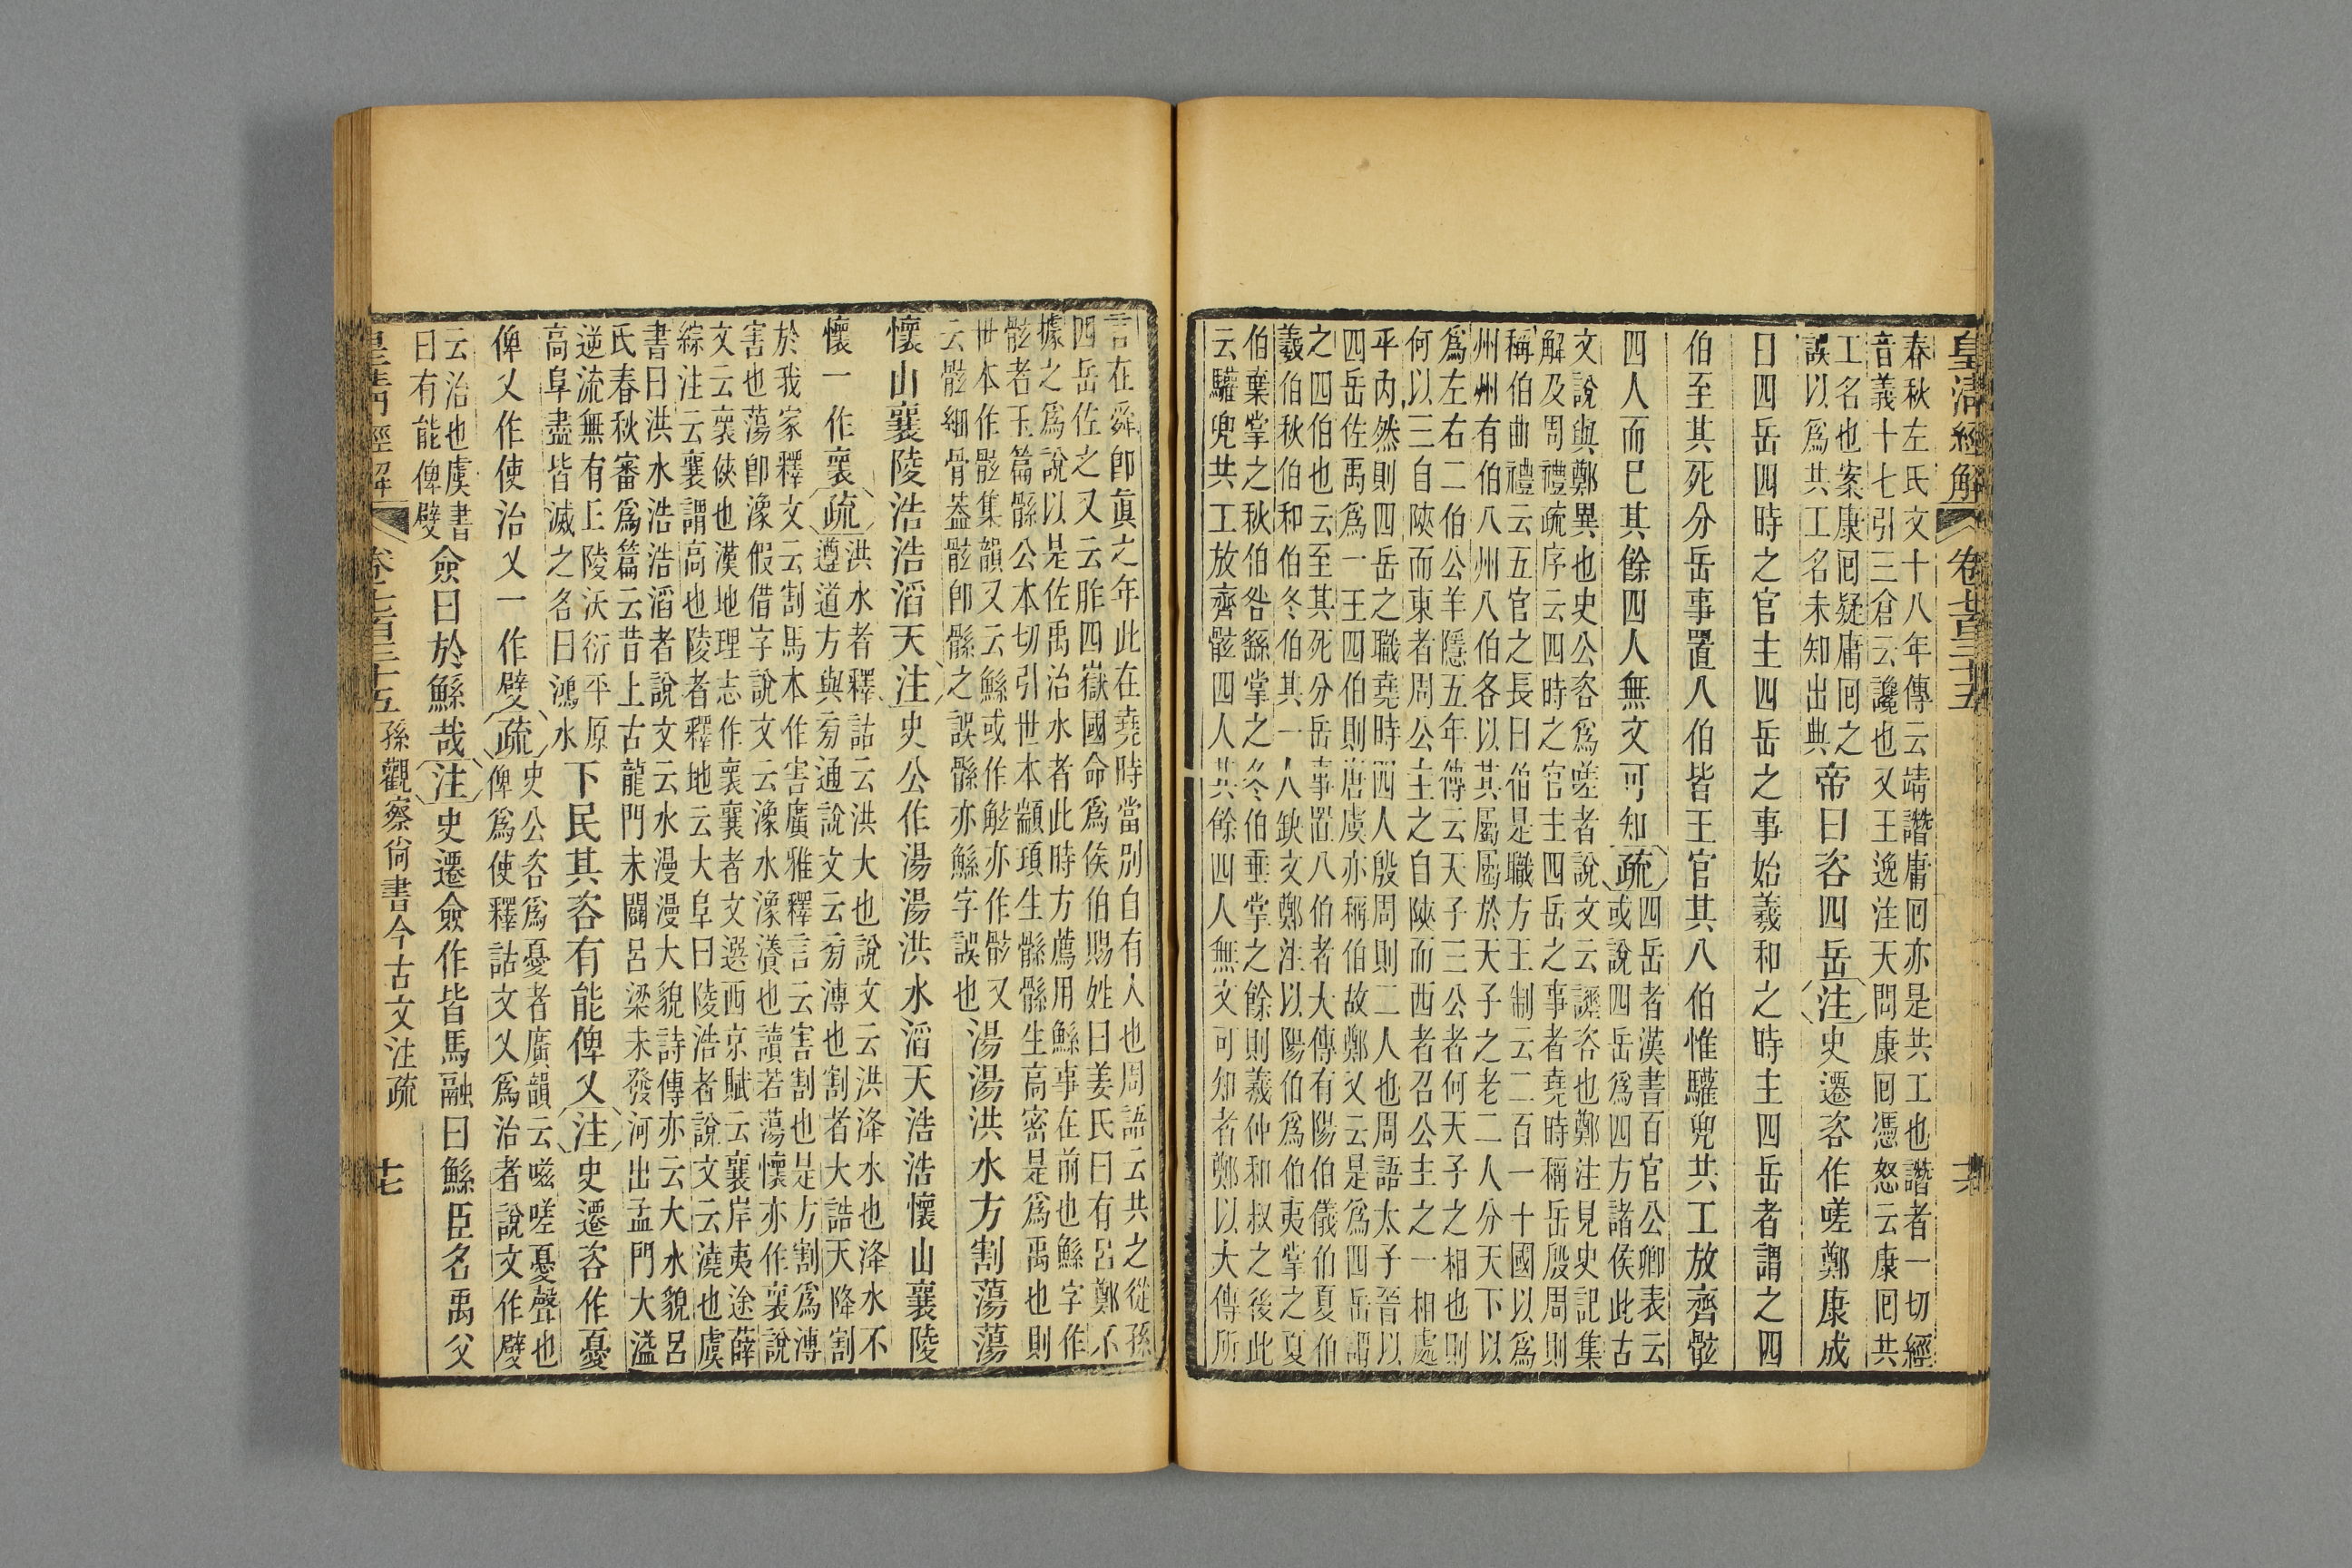 皇清經解
卷七百三十五
春秋左氏文十八年傳云靖譖庸囘亦是共工也譖者一切經
音義十七引三倉云讒也又王逸注天問康囘憑怒云康囘共
工名也案康囘疑庸囘之
誤以爲共工名未知出典
帝曰咨四岳注史遷咨作嗟鄭康成
曰四岳四時之官主四岳之事始羲和之時主四岳者謂之四
伯至其死分岳事置八伯皆王官其八伯惟驩兜共工放齊骸
四人而已其餘四人無文可知疏
四岳者漢書百官公卿表云
或說四岳爲四方諸侯此古
文說與鄭異也史公咨爲嗟者說文云謯咨也鄭注見史記集
解及周禮疏序云四時之官主四岳之事者堯時稱岳殷周則
稱伯曲禮云五官之長曰伯是職方王制云二百一十國以爲
州州有伯八州八伯各以其屬屬於天子之老二人分天下以
爲左右二伯公羊隱五年傳云天子三公者何天子之相也則
何以三自陝而東者周公主之自陝而西者召公主之一相處
乎內然則四岳之職堯時四人殷周則二人也周語太子晉以
四岳佐禹爲一王四伯則唐虞亦稱伯故鄭又云是爲四岳謂
之四伯也云至其死分岳事置八伯者大傳有陽伯儀伯夏伯
羲伯秋伯和伯冬伯其一人缺文鄭注以陽伯爲伯夷掌之夏
伯棄掌之秋伯咎繇掌之冬伯垂掌之餘則羲仲和叔之後此
云驩兜共工放齊骸四人其餘四人無文可知者鄭以大傳所
言在舜卽眞之年此在堯時當別自有人也周語云共之從孫
四岳佐之又云胙四嶽國命爲侯伯賜姓曰姜氏曰有呂鄭不
據之爲說以是佐禹治水者此時方薦用鯀事在前也鯀字作
骸者玉篇骸公本切引世本顓頊生骸骸生高密是爲禹也則
世本作骸集韻又云鯀或作𩩌亦作骸又
云骸細骨葢骸卽骸之誤骸亦鯀字誤也
湯湯洪水方割蕩蕩
懷山襄陵浩浩滔天注史公作湯湯洪水滔天浩浩懷山襄陵
懷一作褱疏
洪水者釋詁云洪大也說文云洪洚水也洚水不
遵道方與旁通說文云旁溥也割者大誥天降割
於我家釋文云割馬本作害廣雅釋言云害割也是方割爲溥
害也蕩卽潒假借字說文云潒水潒瀁也讀若蕩懷亦作褱說
文云褱俠也漢地理志作褱襄者文選西京賦云襄岸夷途薛
綜注云襄謂高也陵者釋地云大阜曰陵浩者說文云澆也虞
書曰洪水浩浩滔者說文云水漫漫大貌詩傳亦云大水貌呂
氏春秋審爲篇云昔上古龍門未闢呂梁未發河出孟門大溢
逆流無有丘陵沃衍平原
高阜盡皆滅之名曰鴻水
下民其咨有能俾乂注史遷咨作憂
俾乂作使治乂一作嬖疏
史公咨爲憂者廣韻云嗞嗟憂聲也
俾爲使釋詁文乂爲治者說文作嬖
云治也虞書
曰有能俾嬖
僉曰於鯀哉注史遷僉作皆馬融曰鯀臣名禹父
皇清經解
卷七百三十五 孫觀察尙書今古文注疏